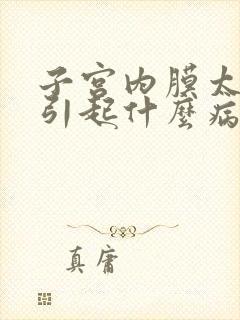 子宫内膜太
引起什麼病
真庸